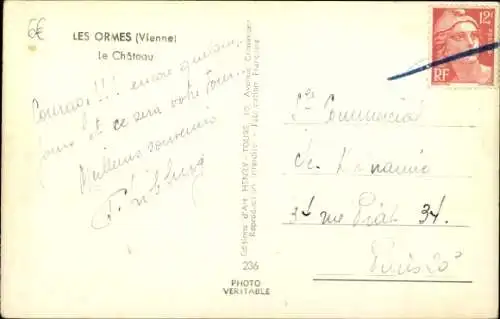 6€
LES ORMES (Vienne)
Le Château
Courage!!! encore quelques
jours et ce sera votre tour.
Meilleurs souvenirs
12F
RF
Editions d'Art HENRY - TOURS, 10 Avenue
Reproduction Interdite - Fabrication Française
236
PHOTO
VERITABLE
Commercial
de
34 rue Piat 34.
Paris 20°